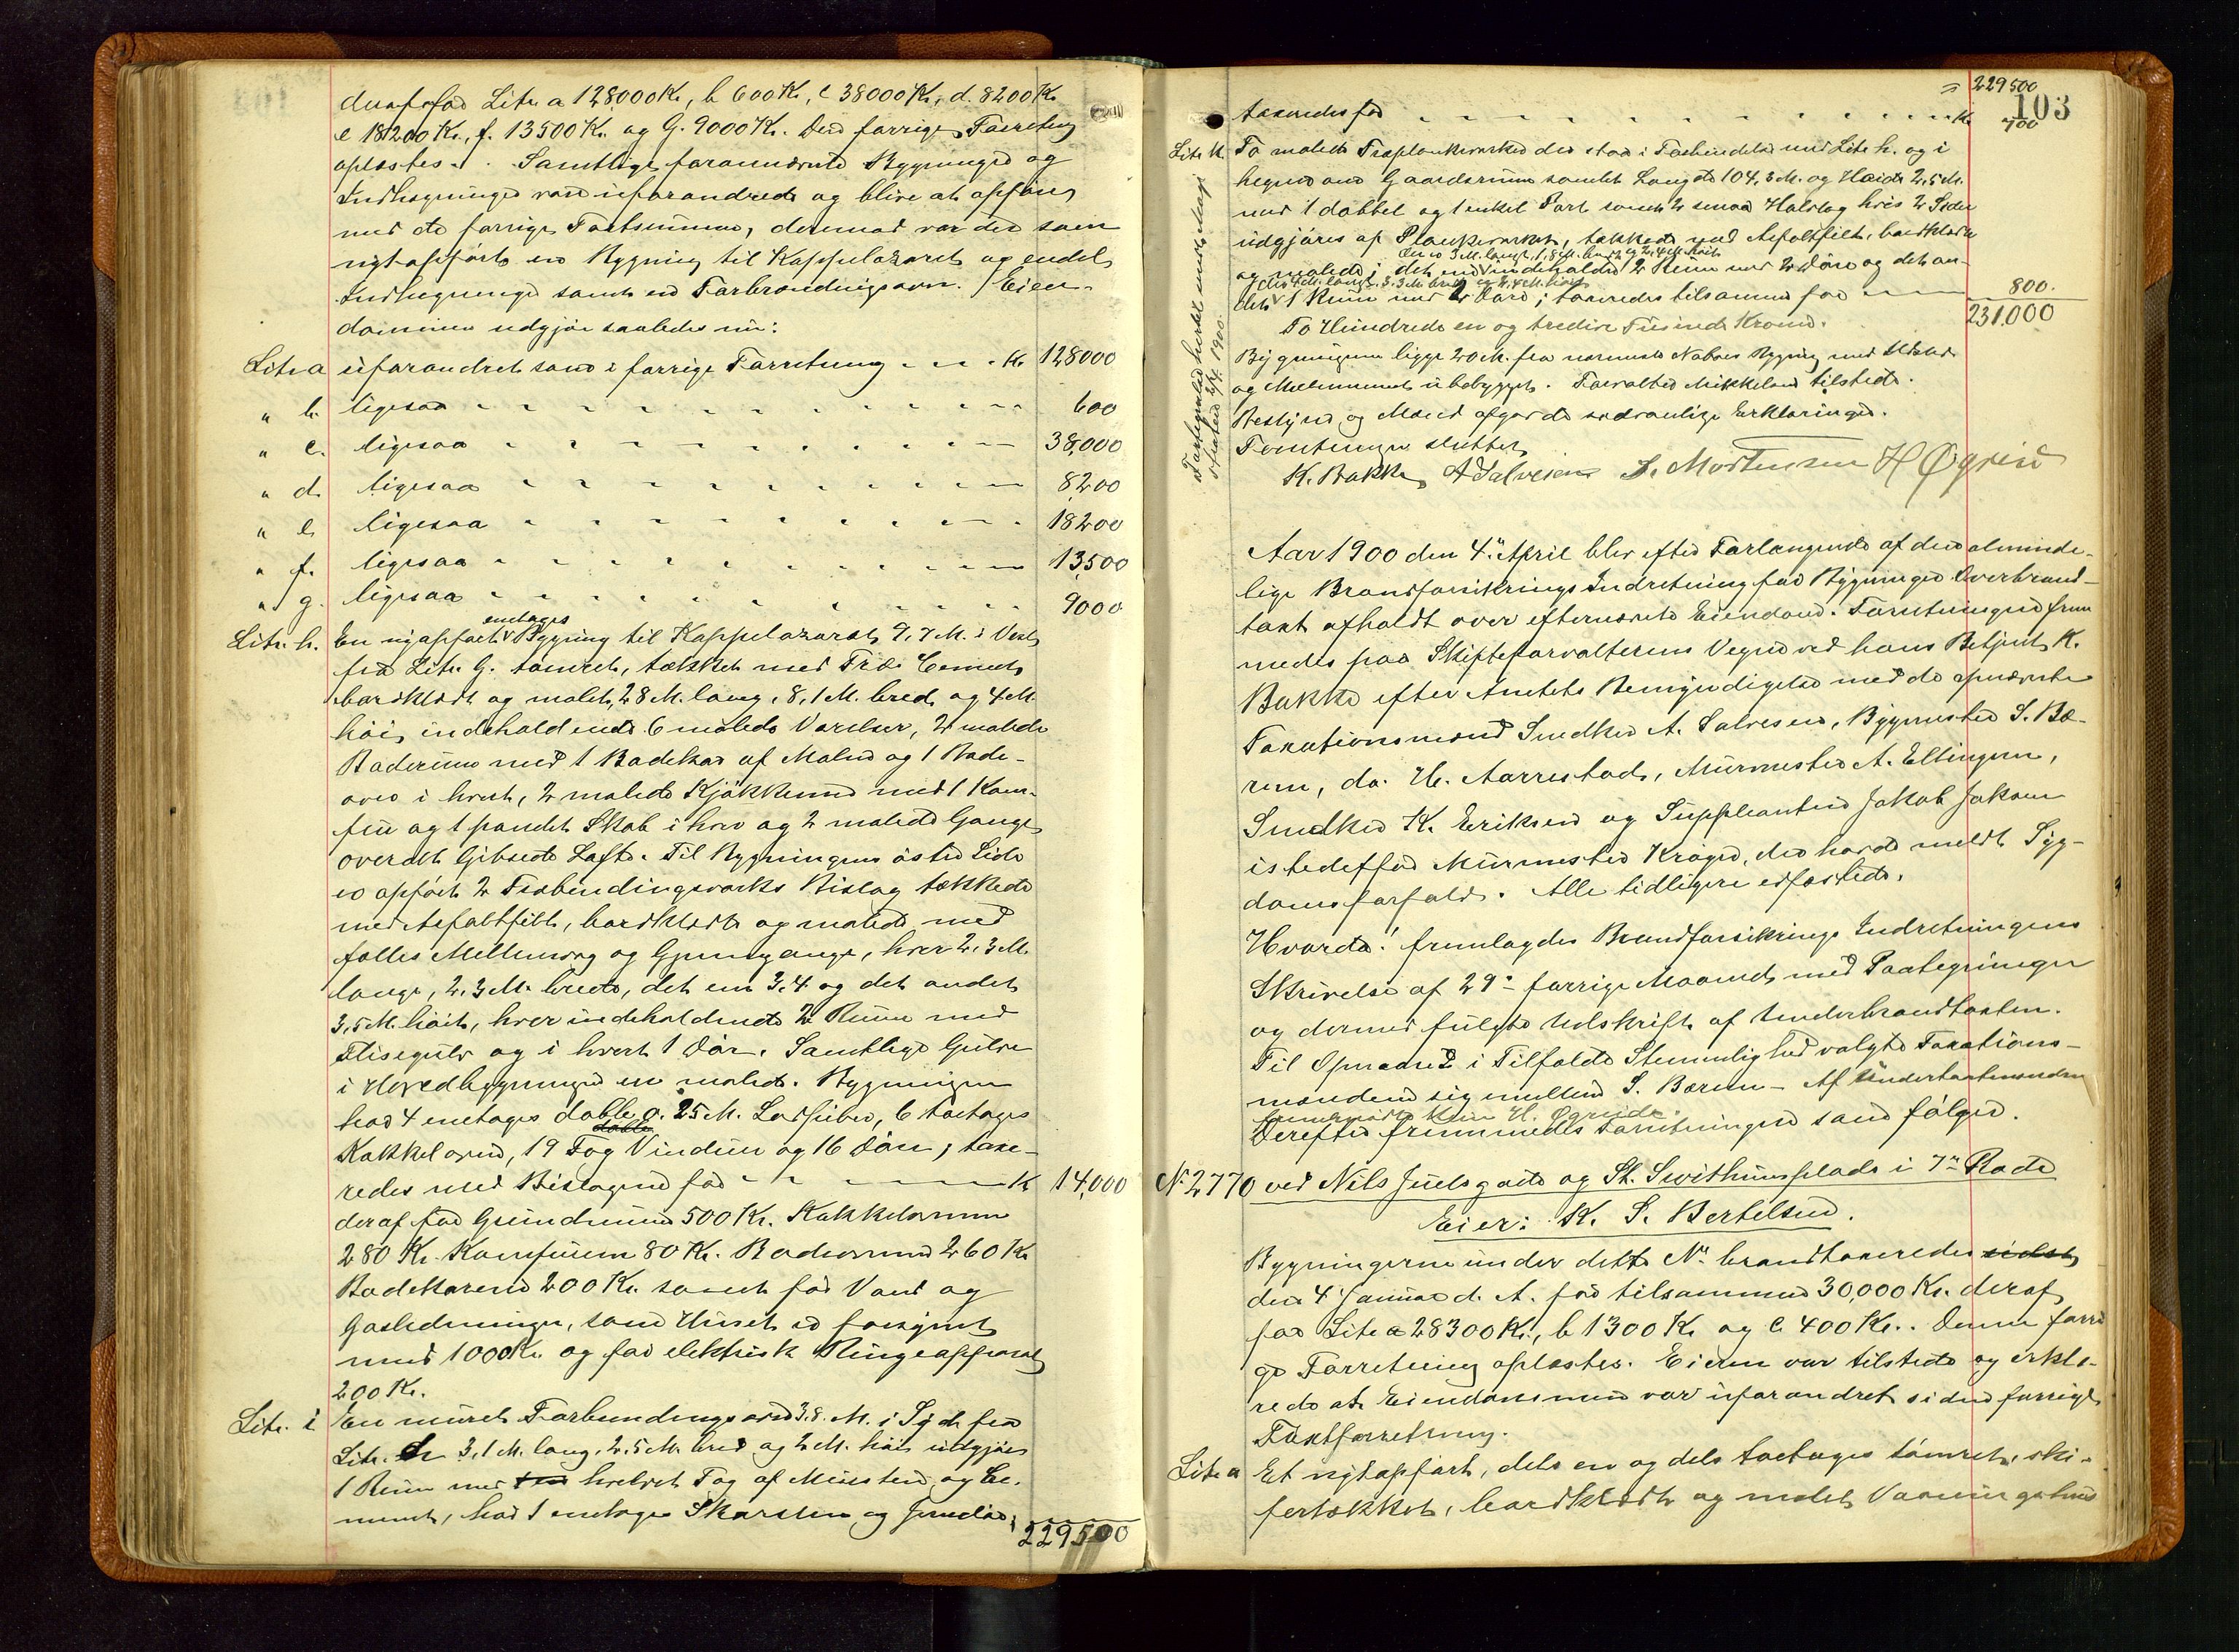 deraf for Litr. a 128000 Kr., b 600 Kr., c 38000 Kr., d. 8200 Kr.
e 18200 Kr., f. 13500 Kr. og G. 9000 Kr. Den forrige Forretning
oplæstes. Samtlige forannævnte Bygninger og
Indhegninger vare uforandrede og blive at opføre
med de forrige Taxtsummer, derimod var der som
nyt opført en Bygning til Koppelazaret og endel
Indhegninger samt en Forbrændingsovn. Eien-
dommen udgjør saaledes nu:
Litr a uforandret som i forrige Forretning - - - Kr. 128000
" b. ligesaa 600
" c. ligesaa 38,000
" d. ligesaa 8,200
" e. ligesaa 18200
" f. ligesaa 13,500
" g. ligesaa 9000
enetages
Litr. h. En nyopført Bygning til Koppelazaret, 9,7 M. i Vest
fra Litr. G. tømret, tækket med Træ Cement,
bordklædt og malet, 28 M. lang, 8,1 M. bred, og 4 M.
høi, indeholdende 6 malede Værelser, 2 malede
Baderum med 1 Badekar af Malm og 1 Bade-
ovn i hvert, 2 malede Kjøkkener med 1 Kom-
fur og 1 panelt Skab i hver og 2 malede Gange,
overalt Gibsede Loft. Til Bygningens østre Side
er opført 2 Træbindingsværks Bislag tækkede
med Asfaltfilt, bordklædt og malede med
fælles Mellemvæg og Gjennemgange, hver 2,3 M.
lange, 2,3 M. brede, det ene 3,4 og det andet
3,5 M. høit, hver indeholdende 2 Rum med
Flisegulv og i hvert 1 Dør. Samtlige Gulve
i Hovedbygningen ere malede. Bygningen
har 4 enetages doble a. 25 M. Lodpiber, 6 toetages
doble
Kakkelovne, 19 Fag Vinduer og 16 Døre; taxe-
redes med Bislagene for - - - Kr. 14,000
deraf for Grundmuren 500 Kr. Kakkelovnene
280 Kr. Komfurene 80 Kr. Badeovnene 260 Kr.
Badekarene 200 Kr. samt for Vand og
Gasledninger, som Huset er forsynet
med 1000 Kr. og for elektrisk Ringeapparat
200 Kr.
Litr. i En muret Forbrændingsovn 3,8. M. i Syd fra
Litr. h 3,1 M. lang, 2,5 M. bred og 2 M. høi udgjør
1 Rum med hvelvet Tag af Mursten og Ce-
ment, har 1 enetages Skorsten og Jerndør;
229500
= 229500
103
taxeredes for - - - Kr. 700
Litr. k. To malede Træplankeværker der staa i Forbindelse med Litr. h. og i
hegner om Gaardsrum samlet Længde 104,3 M. og Høide 2,5 M.
med 1 dobbelt og 1 enkelt Port samt 2 smaa Halvtag hvis 2 Sider
udgjøres af Plankeværket, tækkede med Asfaltfilt, bordklædte
der er 3 M. langt, 1,8 M. bredt og 2,4 M. høit
og malede; det ene indeholder 2 Rum med 2 Døre og det an-
det 1 Rum med 2 Døre; taxeredes tilsammen for - - 800.
To Hundrede en og tredive Tusinde Kroner. 231,000
Bygningerne ligge 20 M. fra nærmeste Nabos Bygning med Udskud
og Mellemrummet ubebygget. Forvalter Mikkelsen tilstede.
Bestyrer og Mænd afgav de sædvanlige Erklæringer.
Forretningen sluttet
K. Bakke A Salvesen S. Mortensen H Øgreid
Aar 1900 den 4de April blev efter Forlangende af den alminde-
lige Brandforsikrings Indretning for Bygninger Overbrand-
taxt afholdt over efternævnte Eiendom. Forretningen frem-
medes paa Skifteforvalterens Vegne ved hans Betjent K.
Bakke efter Amtets Bemyndigelse med de opnævnte
Taxationsmænd Snedker A. Salvesen, Bygmester S. Bæ-
rem, do. H. Aarrestad, Murmester A. Ellingsen,
Snedker K. Eriksen og Suppleanten Jakob Jaksen
istedetfor Murmester Krøger, der havde meldt Syg-
domsforfald. Alle tidligere edfæstede.
Hvorda! fremlagdes Brandforsikrings Indretningens
Skrivelse af 29de forrige Maaned med Paategninger
og dermed fulgte Udskrift af Underbrandtaxten.
Til Opmand i Tilfælde Stemmelighed valgte Taxations-
mændene sig mellem S. Bærem - Af Undertaxtmændene
H. Øgreid.
Derefter fremmedes Forretningen som følger.
No 2770 ved Nils Juelsgade og St. Swithunsplads i 7de Rode
Eier: K. S. Bertelsen.
Bygningerne under dette No. brandtaxeredes sidst
den 4 Januar d. A. for tilsammen 30,000 Kr. deraf
for Litr a 28300 Kr., b 1300 Kr. og c 400 Kr.. Denne forri-
ge Forretning oplæstes. Eieren var tilstede og erklæ-
rede at Eiendommen var uforandret siden forrige
Taxtforretning.
Litr a Et nyt opført, dels en og dels toetages tømret, ski-
fertækket, bordklædt og malet Vaaningshus